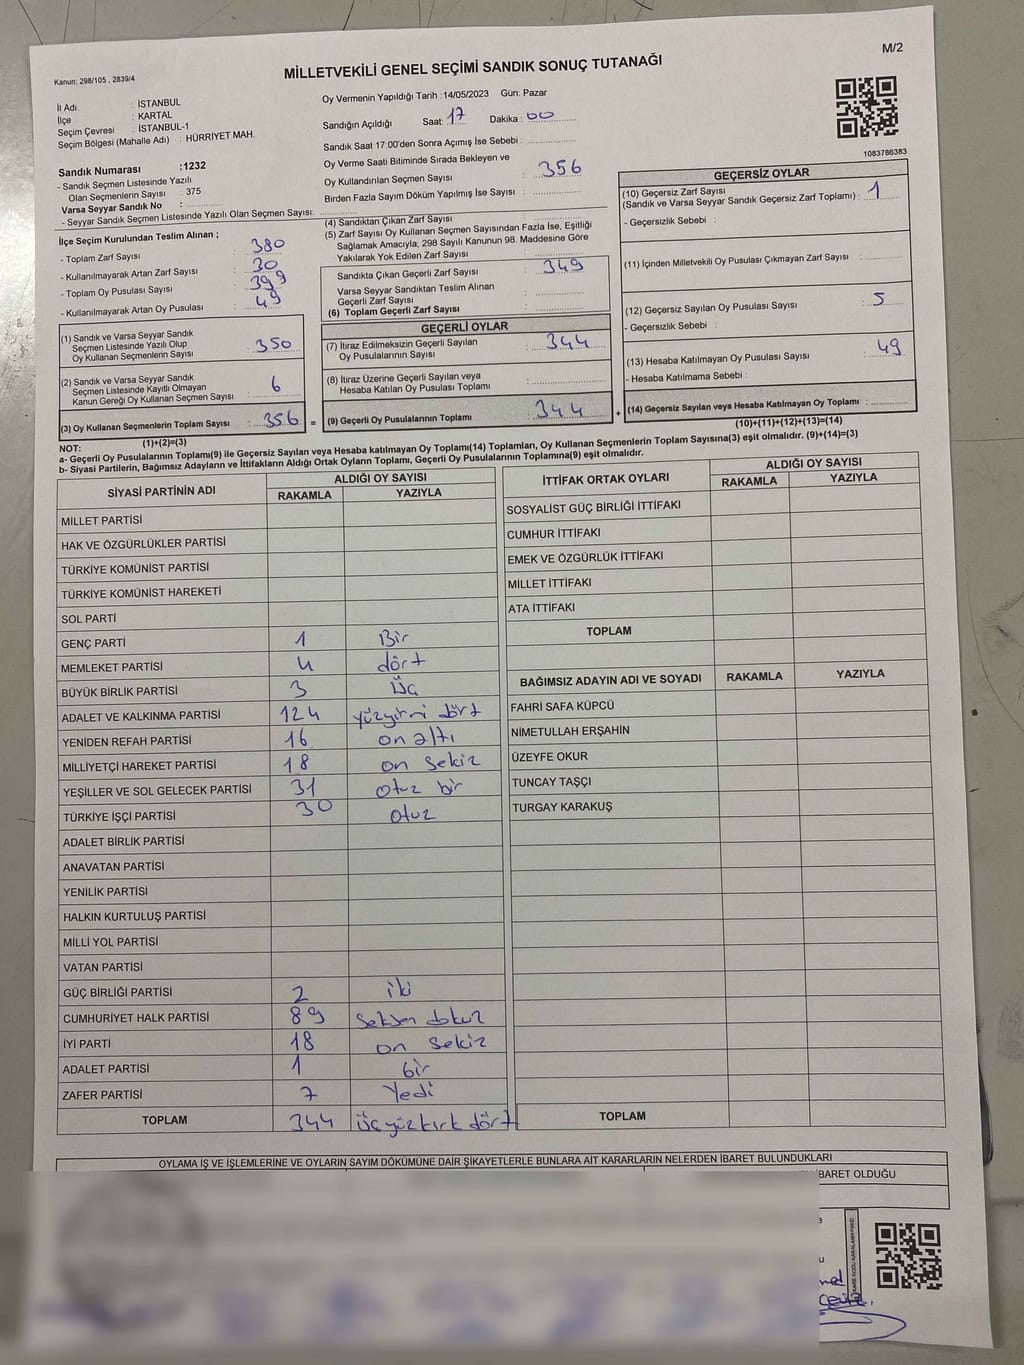 M/2
Kanun: 298/105 , 2839/4
MİLLETVEKİLİ GENEL SEÇİMİ SANDIK SONUÇ TUTANAĞI
İl Adı : İSTANBUL
İlçe : KARTAL
Seçim Çevresi : İSTANBUL-1
Seçim Bölgesi (Mahalle Adı) : HÜRRİYET MAH.
Sandık Numarası :1232
- Sandık Seçmen Listesinde Yazılı
Olan Seçmenlerin Sayısı : 375
Varsa Seyyar Sandık No :
- Seyyar Sandık Seçmen Listesinde Yazılı Olan Seçmen Sayısı:
Oy Vermenin Yapıldığı Tarih :14/05/2023 Gün: Pazar
Sandığın Açıldığı Saat: 17 Dakika : 00
Sandık Saat 17:00'den Sonra Açımış İse Sebebi :
Oy Verme Saati Bitiminde Sırada Bekleyen ve
Oy Kullandırılan Seçmen Sayısı : 356
Birden Fazla Sayım Döküm Yapılmış İse Sayısı :
1083786383
İlçe Seçim Kurulundan Teslim Alınan ;
- Toplam Zarf Sayısı : 380
- Kullanılmayarak Artan Zarf Sayısı : 30
- Toplam Oy Pusulası Sayısı : 399
- Kullanılmayarak Artan Oy Pusulası : 49
(1) Sandık ve Varsa Seyyar Sandık
Seçmen Listesinde Yazılı Olup
Oy Kullanan Seçmenlerin Sayısı : 350
(2) Sandık ve Varsa Seyyar Sandık
Seçmen Listesinde Kayıtlı Olmayan
Kanun Gereği Oy Kullanan Seçmen Sayısı : 6
(3) Oy Kullanan Seçmenlerin Toplam Sayısı : 356 =
(1)+(2)=(3)
(4) Sandıktan Çıkan Zarf Sayısı :
(5) Zarf Sayısı Oy Kullanan Seçmen Sayısından Fazla İse, Eşitliği
Sağlamak Amacıyla, 298 Sayılı Kanunun 98. Maddesine Göre
Yakılarak Yok Edilen Zarf Sayısı :
Sandıkta Çıkan Geçerli Zarf Sayısı : 349
Varsa Seyyar Sandıktan Teslim Alınan
Geçerli Zarf Sayısı :
(6) Toplam Geçerli Zarf Sayısı :
GEÇERLİ OYLAR
(7) İtiraz Edilmeksizin Geçerli Sayılan
Oy Pusulalarının Sayısı : 344
(8) İtiraz Üzerine Geçerli Sayılan veya
Hesaba Katılan Oy Pusulası Toplamı :
(9) Geçerli Oy Pusulalarının Toplamı : 344 +
GEÇERSİZ OYLAR
(10) Geçersiz Zarf Sayısı
(Sandık ve Varsa Seyyar Sandık Geçersiz Zarf Toplamı) : 1
- Geçersizlik Sebebi :
(11) İçinden Milletvekili Oy Pusulası Çıkmayan Zarf Sayısı :
(12) Geçersiz Sayılan Oy Pusulası Sayısı : 5
- Geçersizlik Sebebi :
(13) Hesaba Katılmayan Oy Pusulası Sayısı : 49
- Hesaba Katılmama Sebebi :
(14) Geçersiz Sayılan veya Hesaba Katılmayan Oy Toplamı :
(10)+(11)+(12)+(13)=(14)
NOT:
a- Geçerli Oy Pusulalarının Toplamı(9) ile Geçersiz Sayılan veya Hesaba katılmayan Oy Toplamı(14) Toplamları, Oy Kullanan Seçmenlerin Toplam Sayısına(3) eşit olmalıdır. (9)+(14)=(3)
b- Siyasi Partilerin, Bağımsız Adayların ve İttifakların Aldığı Ortak Oyların Toplamı, Geçerli Oy Pusulalarının Toplamına(9) eşit olmalıdır.
SİYASİ PARTİNİN ADI ALDIĞI OY SAYISI
RAKAMLA YAZIYLA
MİLLET PARTİSİ
HAK VE ÖZGÜRLÜKLER PARTİSİ
TÜRKİYE KOMÜNİST PARTİSİ
TÜRKİYE KOMÜNİST HAREKETİ
SOL PARTİ
GENÇ PARTİ 1 Bir
MEMLEKET PARTİSİ 4 dört
BÜYÜK BİRLİK PARTİSİ 3 Üç
ADALET VE KALKINMA PARTİSİ 124 yüzyirmi dört
YENİDEN REFAH PARTİSİ 16 on altı
MİLLİYETÇİ HAREKET PARTİSİ 18 on sekiz
YEŞİLLER VE SOL GELECEK PARTİSİ 31 otuz bir
TÜRKİYE İŞÇİ PARTİSİ 30 otuz
ADALET BİRLİK PARTİSİ
ANAVATAN PARTİSİ
YENİLİK PARTİSİ
HALKIN KURTULUŞ PARTİSİ
MİLLİ YOL PARTİSİ
VATAN PARTİSİ
GÜÇ BİRLİĞİ PARTİSİ 2 iki
CUMHURİYET HALK PARTİSİ 89 seksen dokuz
İYİ PARTİ 18 on sekiz
ADALET PARTİSİ 1 bir
ZAFER PARTİSİ 7 Yedi
TOPLAM 344 Üçyüzkırk dört
İTTİFAK ORTAK OYLARI ALDIĞI OY SAYISI
RAKAMLA YAZIYLA
SOSYALİST GÜÇ BİRLİĞİ İTTİFAKI
CUMHUR İTTİFAKI
EMEK VE ÖZGÜRLÜK İTTİFAKI
MİLLET İTTİFAKI
ATA İTTİFAKI
TOPLAM
BAĞIMSIZ ADAYIN ADI VE SOYADI RAKAMLA YAZIYLA
FAHRİ SAFA KÜPCÜ
NİMETULLAH ERŞAHİN
ÜZEYFE OKUR
TUNCAY TAŞÇI
TURGAY KARAKUŞ
TOPLAM
OYLAMA İŞ VE İŞLEMLERİNE VE OYLARIN SAYIM DÖKÜMÜNE DAİR ŞİKAYETLERLE BUNLARA AİT KARARLARIN NELERDEN İBARET BULUNDUKLARI
İBARET OLDUĞU